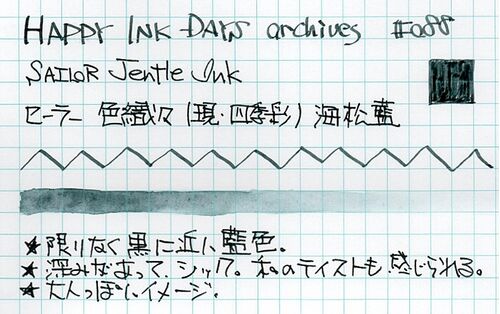 HAPPY INK DAYS archives #088
SAILOR Jentle Ink
セーラー 色織々(現・四季彩) 海松藍
★限りなく黒に近い藍色。
★深みがあって、シック。和のテイストも感じられる。
★大人っぽいイメージ。